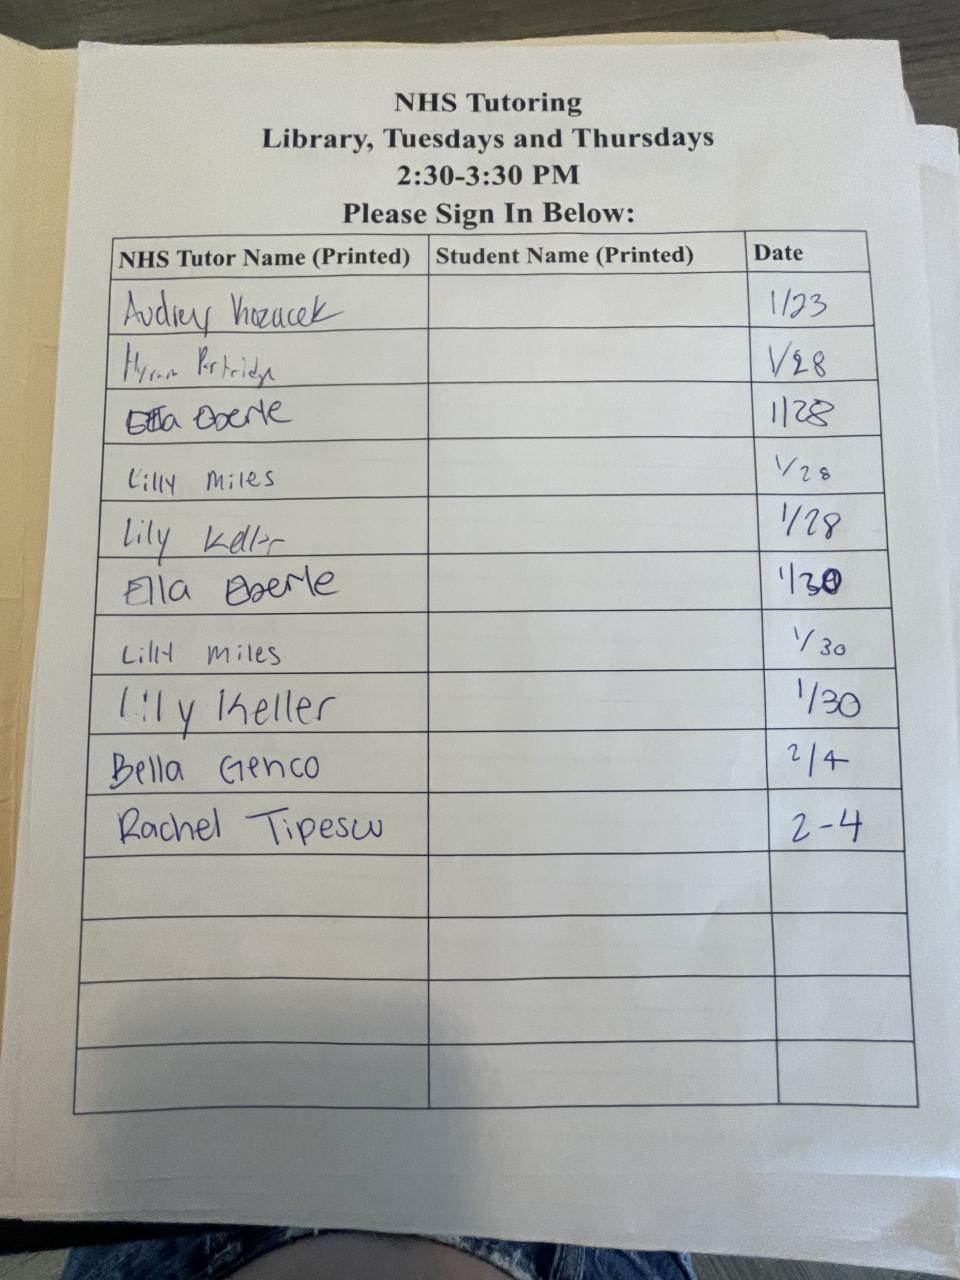 NHS Tutoring
Library, Tuesdays and Thursdays
2:30-3:30 PM
Please Sign In Below:
NHS Tutor Name (Printed) Student Name (Printed) Date
Audrey Kozacek 1/23
Hyrum Partridge 1/28
Ella Eberle 1/28
Lilly Miles 1/28
Lily Keller 1/28
Ella Eberle 1/30
Lilly Miles 1/30
Lily Keller 1/30
Bella Genco 2/4
Rachel Tipescu 2-4